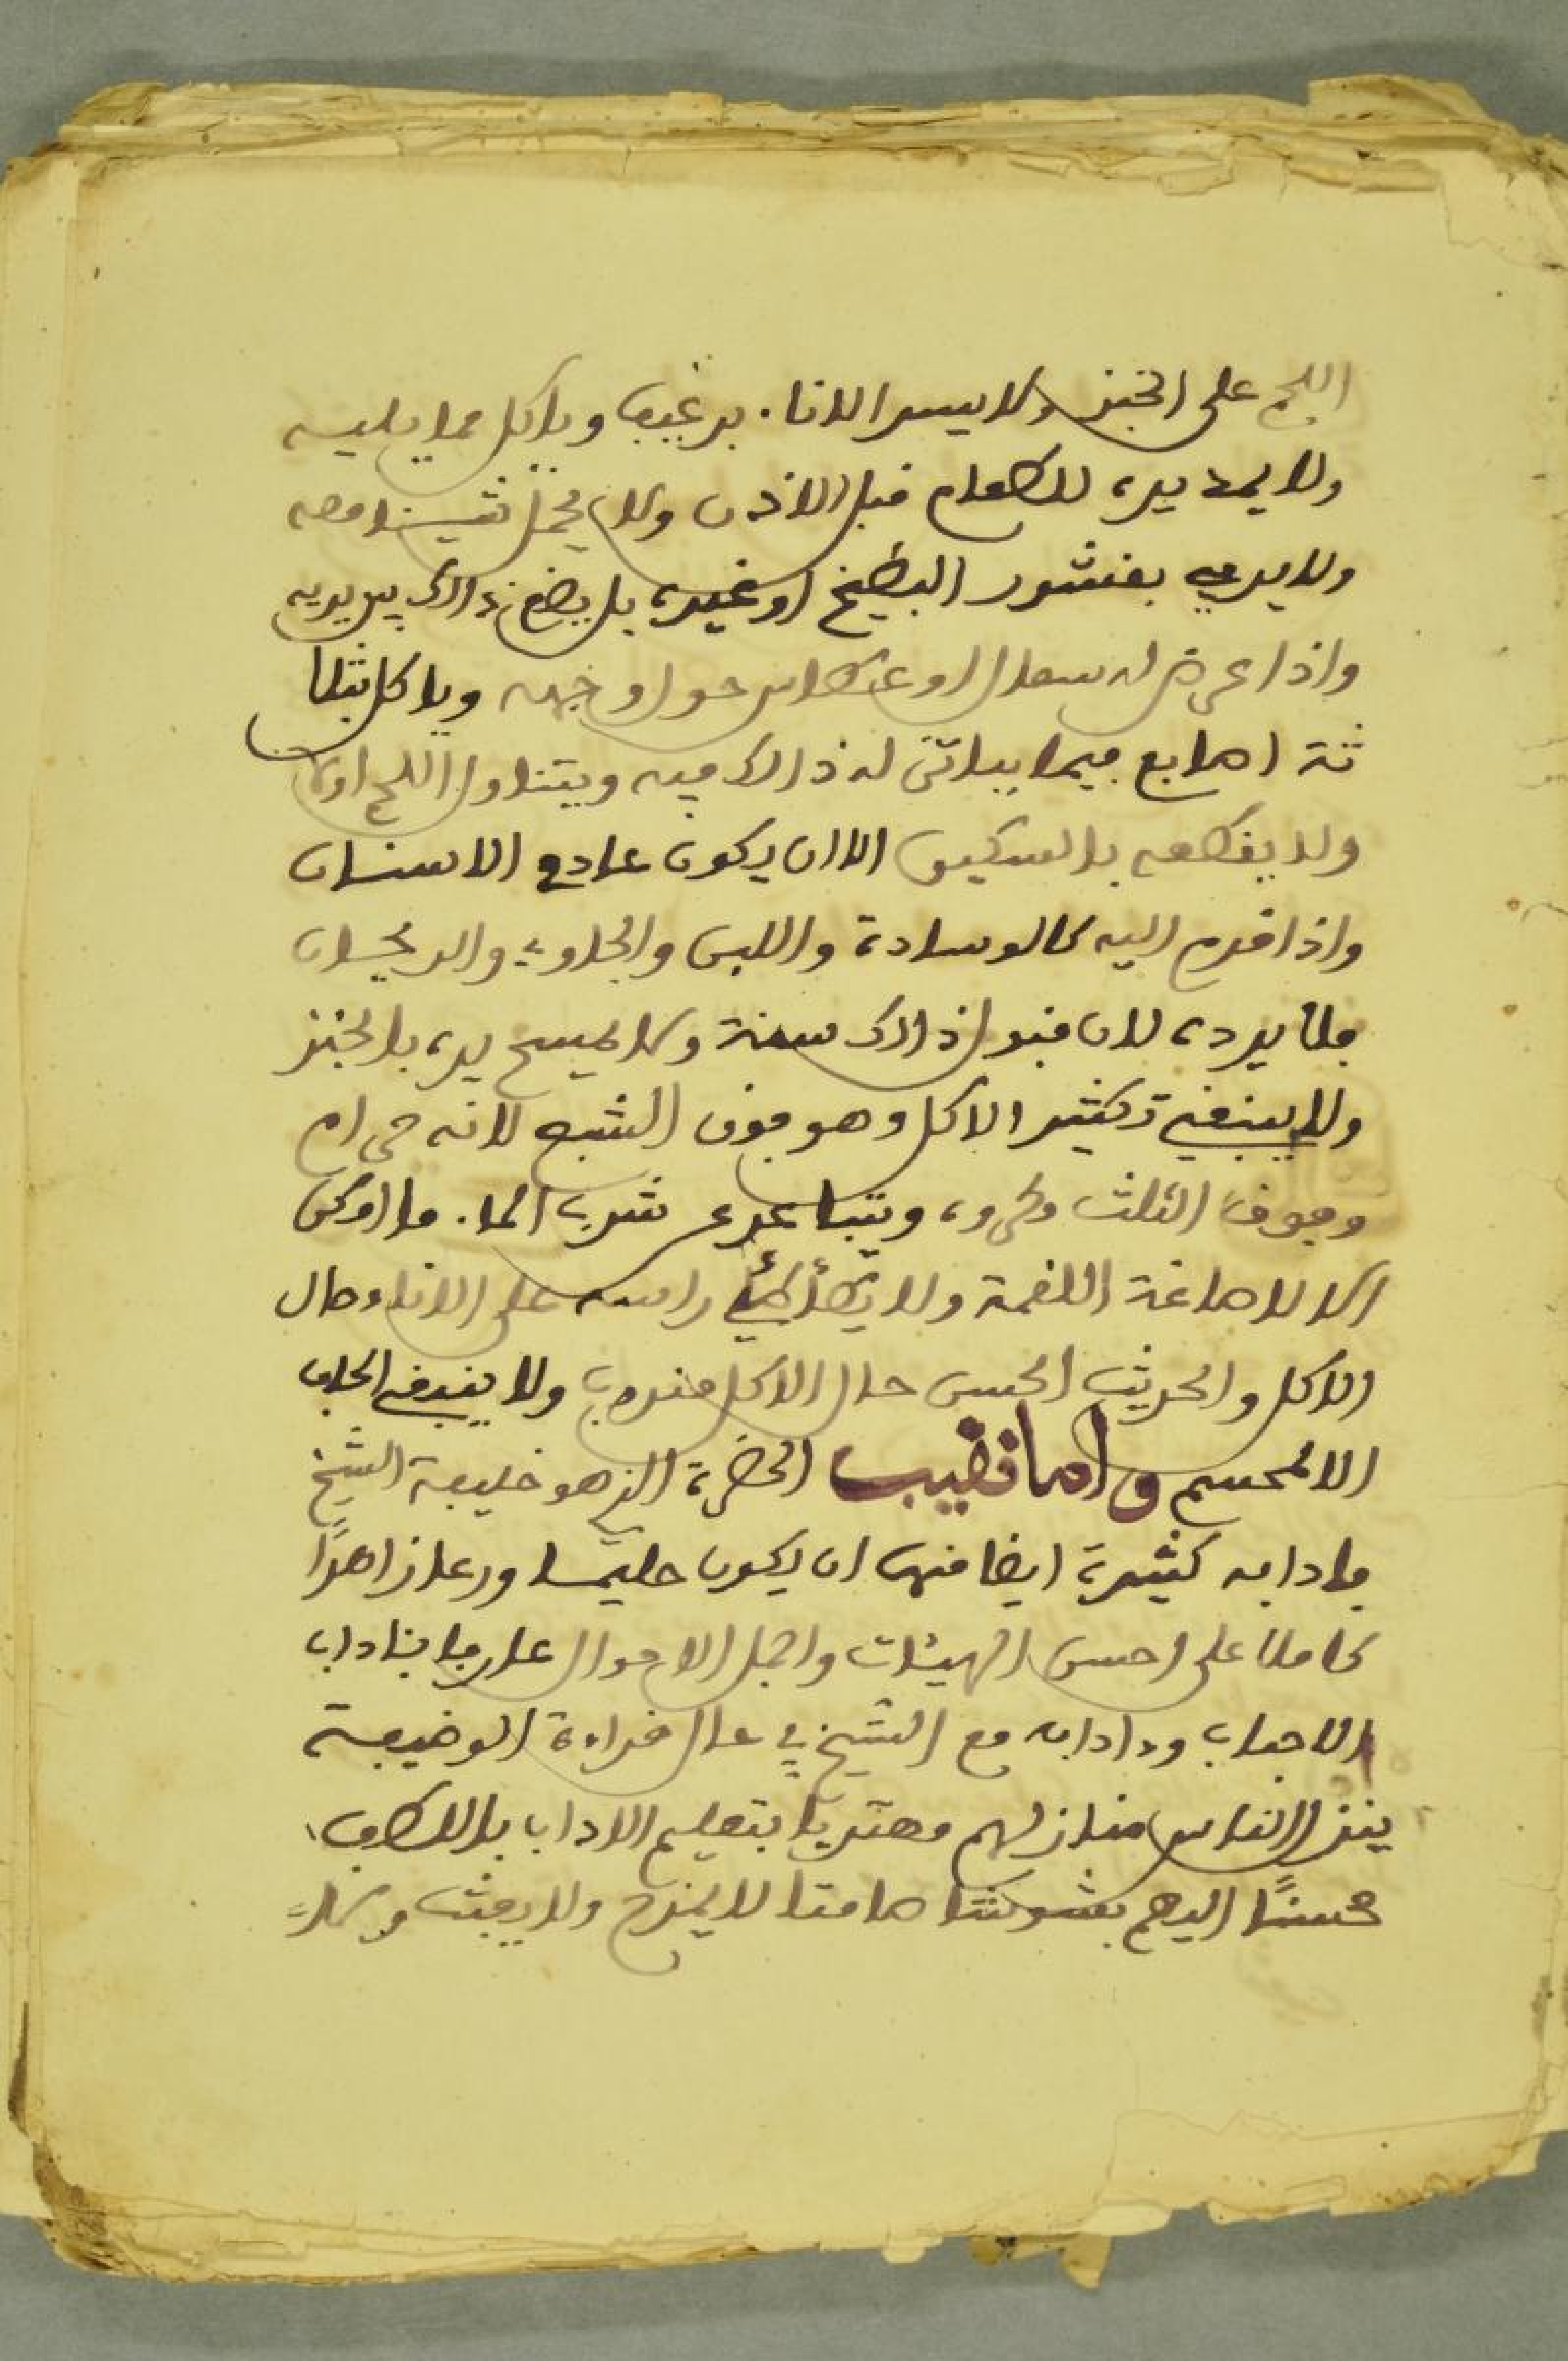 اللحم على الخبز ولا يسد الاناء برغيف وياكل مما يليه
ولا يمد يده للطعام قبل الاذن ولا يحمل شيئا معه
ولا يرمي بقشور البطيخ او غيره بل يضع ذالك بين يديه
واذا عرض له سعال او عطاس حول وجهه وياكل بثلا
ثة اصابع فيما يتاتى له ذالك فيه ويتناول اللحم
ولا يقطعه بالسكين الا ان يكون عادم الاسنان
واذا قدم اليه كالوسادة واللبن والحلوء والريحان
فلا يرده لان قبول ذالك سنة ولا يمسح يده بالخبز
ولا ينبغي تكثير الاكل وهو فوق الشبع لانه حرام
وفوق الثلث مكروه ويتباعد عن شرب الماء ما امكن
الا لاصاغة اللقمة ولا يطأطئ راسه على الاناء حال
الاكل والحديث الحسن حال الاكل مندوب ولا
الا واما نقيب الحضرة الذي هو خليفة الشيخ
فادابه كثيرة ايضا منها ان يكون حليما ورعا زاهدا
كاملا على احسن الهيئات واجمل الاحوال عارفا باداب
الاحباب وادابه مع الشيخ في حال قراءة الوضيفة
ينزل الناس منازلهم معتريا بتعليم الاداب بالالطاف
محسنا اليهم صامتا لا يمزح ولا يرفث